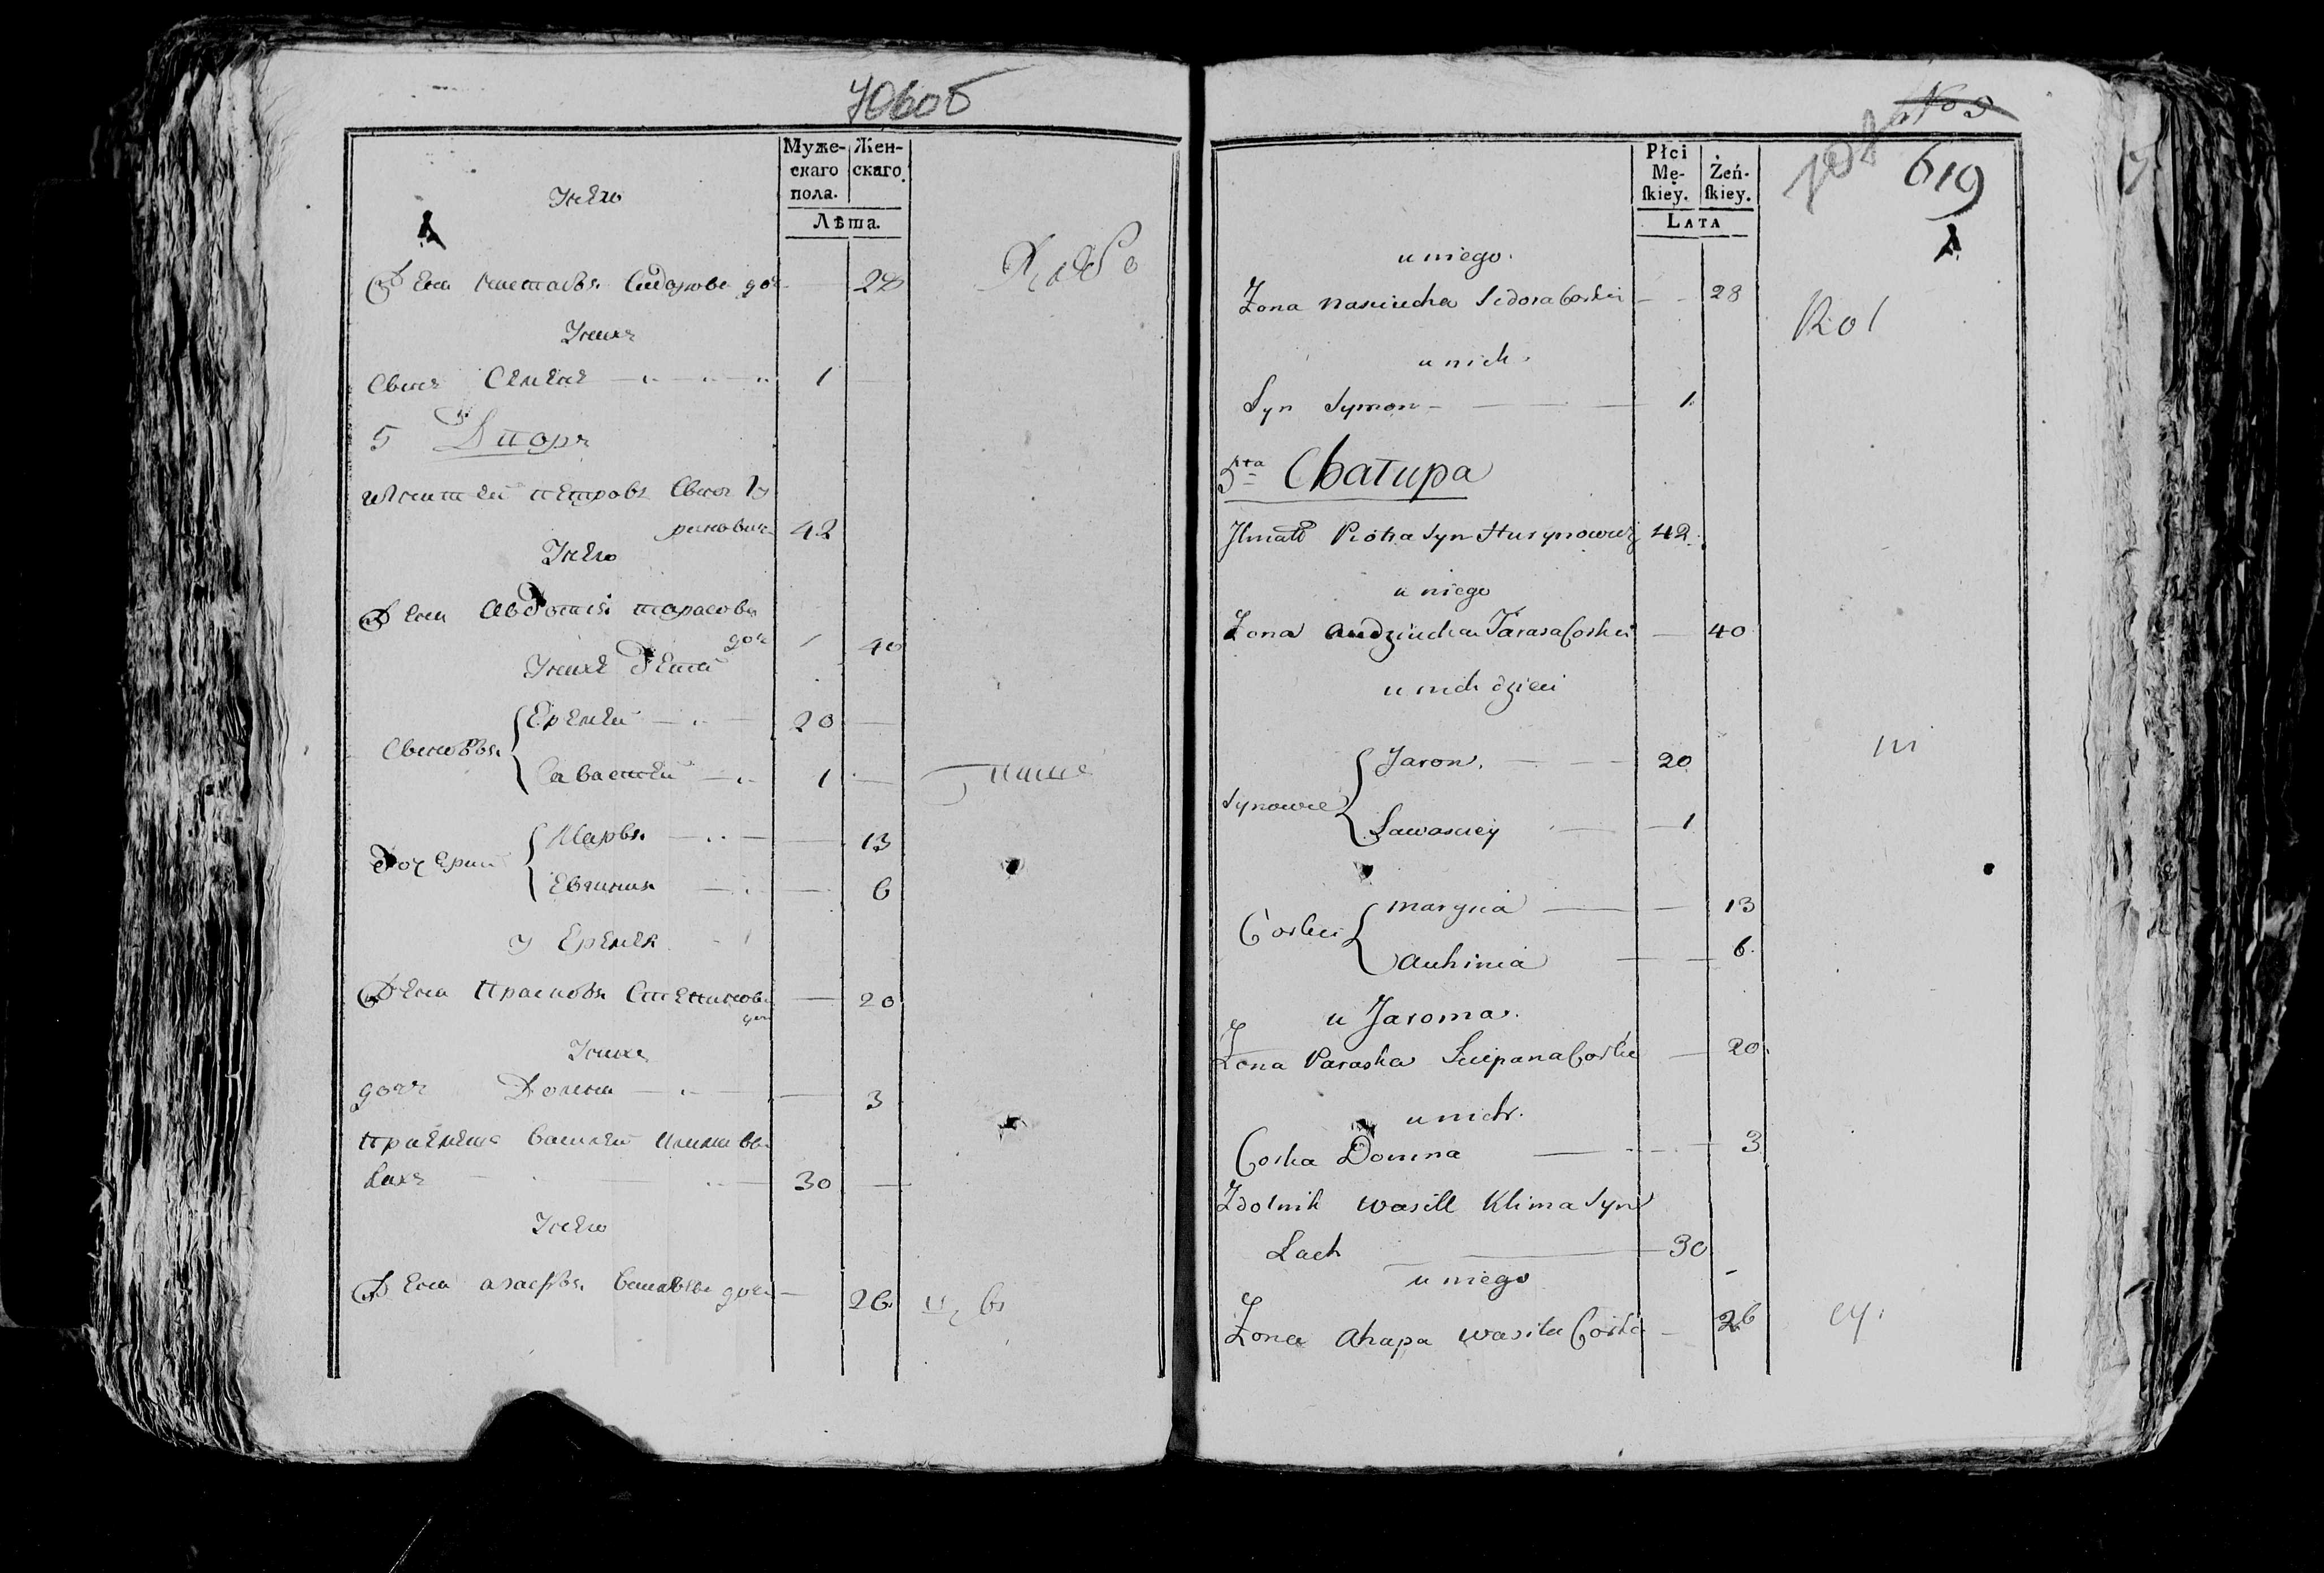 Муже-
скаго
пола.
Жен-
скаго.
Лѣта.
У него
Жена Настасья Сидорова доч 28
У них
Сынъ Семенъ 1
5 Дворъ
Игнатей Петровъ сынъ Гу
риновичъ 42
У него
Жена Авдотия Тарасова
доч 40
У нихъ дети
Сыновья
Еремей 20
Савастей 1
Дочери
Марья 13
Евгиния 6
У Еремея
Жена Прасковья Степанова
доч 20
У нихъ
дочъ Домна 3
Приемышъ Василей Климовъ
Лахъ 30
У него
Жена Агафья Василева доч 26
619
Płci
Mę-
ſkiey.
Żeń-
ſkiey.
LATA
u niego.
Żona Nasciucha Sidora Corka 28
u nich.
Syn Symon 1
5ta Chatupa
Ihnatt Piotra Syn Hurynowicz 42
u niego
Żona Audziucha Tarasa Corka 40
u nich dzieci
Synowie
Jarom 20
Sawasciey 1
Corki
Maryia 13
Auhinia 6
u Jaroma.
Żona Paraska Sciepana Corka 20
u nich.
Corka Domna 3
Zdolnik Wasill Klima Syn
Lach 30
u niego
Żona Ahapa Wasila Corka 26